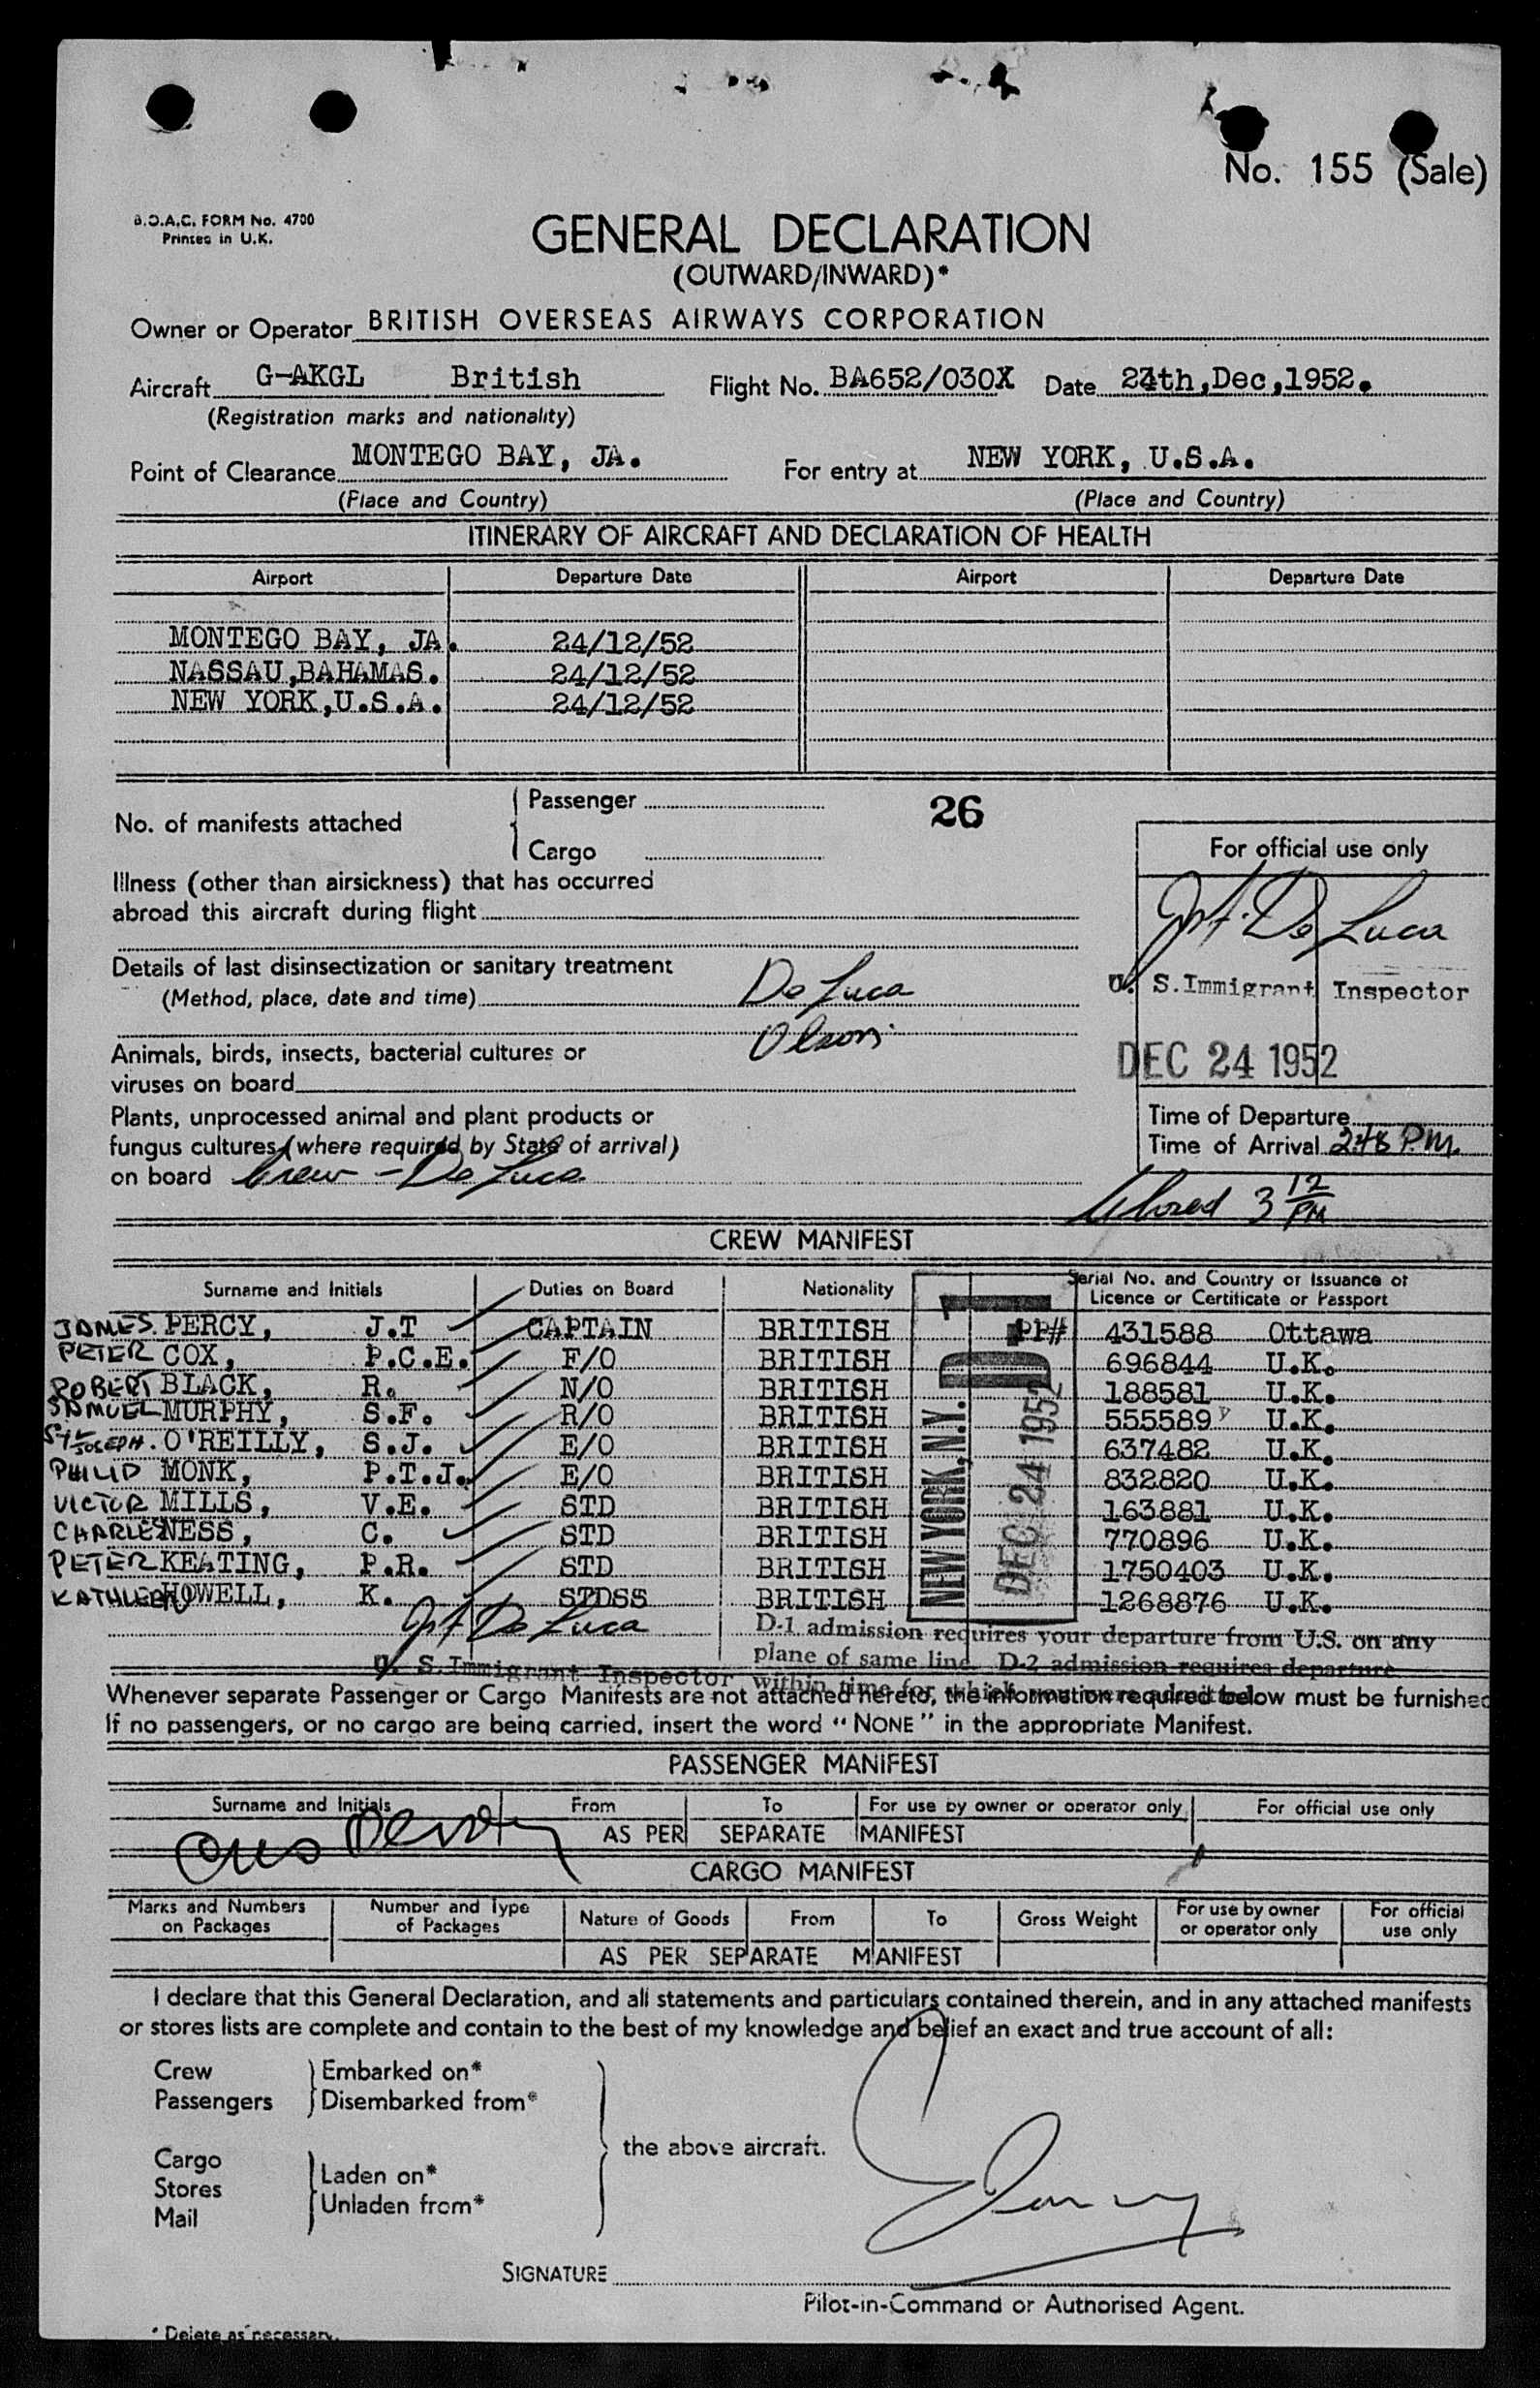 No. 155 (Sale)
B.O.A.C. FORM No. 4700
Printed in U.K.
GENERAL DECLARATION
(OUTWARD/INWARD)*
Owner or Operator BRITISH OVERSEAS AIRWAYS CORPORATION
Aircraft G-AKGL British Flight No. BA652/030X Date 24th,Dec,1952.
(Registration marks and nationality)
Point of Clearance MONTEGO BAY, JA. For entry at NEW YORK, U.S.A.
(Place and Country) (Place and Country)
ITINERARY OF AIRCRAFT AND DECLARATION OF HEALTH
Airport Departure Date Airport Departure Date
MONTEGO BAY, JA. 24/12/52
NASSAU,BAHAMAS. 24/12/52
NEW YORK,U.S.A. 24/12/52
No. of manifests attached
Passenger
26
Cargo
For official use only
Illness (other than airsickness) that has occurred
abroad this aircraft during flight
De Luca
Details of last disinsectization or sanitary treatment
(Method, place, date and time) De Luca
U. S. Immigrant Inspector
Olson
Animals, birds, insects, bacterial cultures or
viruses on board
DEC 24 1952
Plants, unprocessed animal and plant products or
fungus cultures (where required by State of arrival)
on board Crew - De Luca
Time of Departure
Time of Arrival 2:48 P.M.
3 12 PM
CREW MANIFEST
Surname and Initials Duties on Board Nationality Serial No. and Country of Issuance of
Licence or Certificate or Passport
JAMES. PERCY, J.T CAPTAIN BRITISH PP# 431588 Ottawa
PETER COX, P.C.E. F/O BRITISH 696844 U.K.
ROBERT BLACK, R. N/O BRITISH 188581 U.K.
SAMUEL MURPHY, S.F. R/O BRITISH 555589 U.K.
JOSEPH. O'REILLY, S.J. E/O BRITISH 637482 U.K.
PHILIP MONK, P.T.J. E/O BRITISH 832820 U.K.
VICTOR MILLS, V.E. STD BRITISH 163881 U.K.
CHARLES NESS, C. STD BRITISH 770896 U.K.
PETER KEATING, P.R. STD BRITISH 1750403 U.K.
KATHLEEN HOWELL, K. STDSS BRITISH 1268876 U.K.
NEW YORK, N.Y.
DEC 24 1952
D-1
De Luca
U. S. Immigrant Inspector
D-1 admission requires your departure from U.S. on any
plane of same line. D-2 admission requires departure
within time for which you were admitted.
Whenever separate Passenger or Cargo Manifests are not attached hereto, the information required below must be furnished
If no passengers, or no cargo are being carried, insert the word "NONE" in the appropriate Manifest.
PASSENGER MANIFEST
Surname and Initials From To For use by owner or operator only For official use only
AS PER SEPARATE MANIFEST
CARGO MANIFEST
Marks and Numbers on Packages Number and Type of Packages Nature of Goods From To Gross Weight For use by owner or operator only For official use only
AS PER SEPARATE MANIFEST
I declare that this General Declaration, and all statements and particulars contained therein, and in any attached manifests
or stores lists are complete and contain to the best of my knowledge and belief an exact and true account of all:
Crew Embarked on*
Passengers Disembarked from*
the above aircraft.
Cargo
Stores Laden on*
Mail Unladen from*
SIGNATURE
Pilot-in-Command or Authorised Agent.
* Delete as necessary.